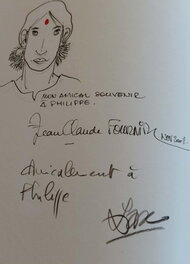 MON AMICAL SOUVENIR
À PHILIPPE.
Jean-Claude FOURNIER
Amicalement à
Philippe